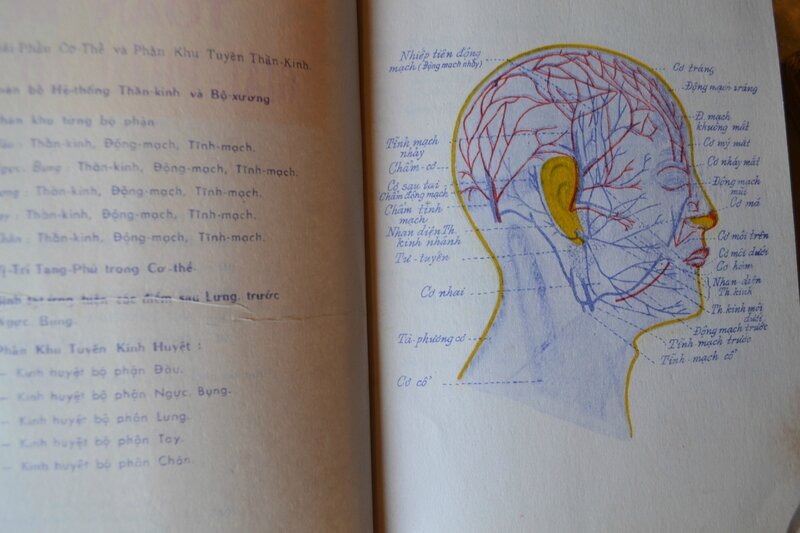 Phần Cơ-Thể và Phân Khu Tuyên Thần-Kinh.
bộ Hệ-thống Thần-kinh và Bộ-xương
khu từng bộ phận
Thần-kinh, Động-mạch, Tĩnh-mạch.
Bụng : Thần-kinh, Động-mạch, Tĩnh-mạch.
: Thần-kinh, Động-mạch, Tĩnh-mạch.
: Thần-kinh, Động-mạch, Tĩnh-mạch.
: Thần-kinh, Động-mạch, Tĩnh-mạch.
Trí Tạng-Phủ trong Cơ-thể
các điểm sau Lưng, trước
Ngực, Bụng.
Phân Khu Tuyên Kinh Huyệt :
— Kinh huyệt bộ phận Đầu.
— Kinh huyệt bộ phận Ngực, Bụng.
— Kinh huyệt bộ phận Lưng.
— Kinh huyệt bộ phận Tay.
— Kinh huyệt bộ phận Chân.
Nhiếp tiền động
mạch (Động mạch nhảy)
Tĩnh mạch
nhảy
Chẩm-cơ
Cơ sau tai
Chẩm động mạch
Chẩm tĩnh
mạch
Nhan diện Th.
kinh nhánh
Tư-tuyên
Cơ nhai
Tà-phương cơ
Cơ cổ
Cơ tráng
Động mạch tráng
Đ. mạch
khuông mắt
Cơ mý mắt
Cơ nháy mắt
Động mạch
mũi
Cơ má
Cơ môi trên
Cơ môi dưới
Cơ hàm
Nhan diện
Th. kinh
Th. kinh môi
dưới
Động mạch trước
Tĩnh mạch trước
Tĩnh mạch cổ